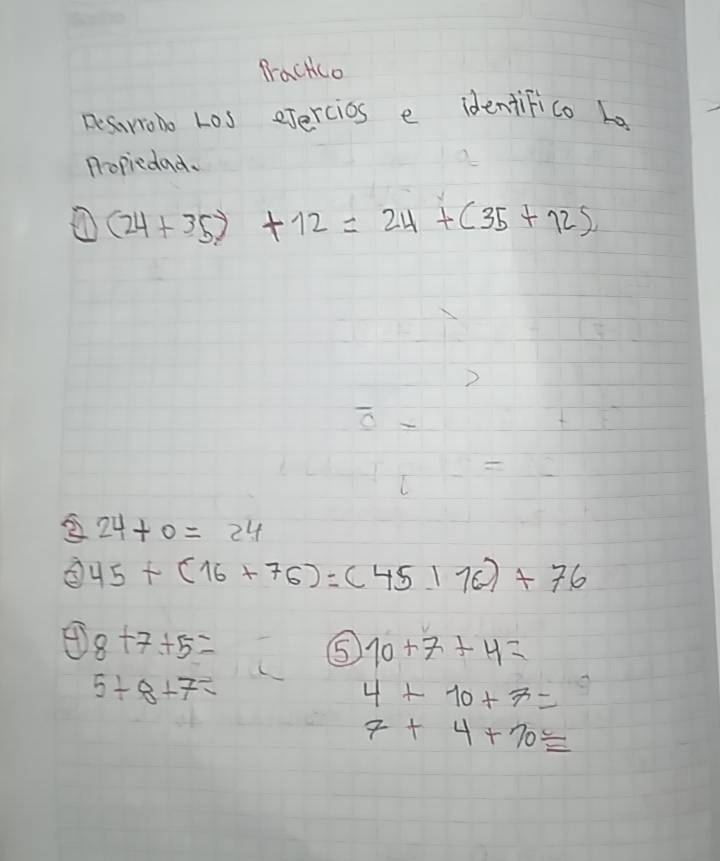 Practico
Desarrollo Los ejercios e identifico La
Propiedad.
① (24 + 35) + 12 = 24 + (35 + 12)
② 24 + 0 = 24
③ 45 + (16 + 76) = (45 + 16) + 76
④ 8 + 7 + 5 = ⑤ 10 + 7 + 4 =
5 + 8 + 7 = 4 + 10 + 7 =
7 + 4 + 10 =